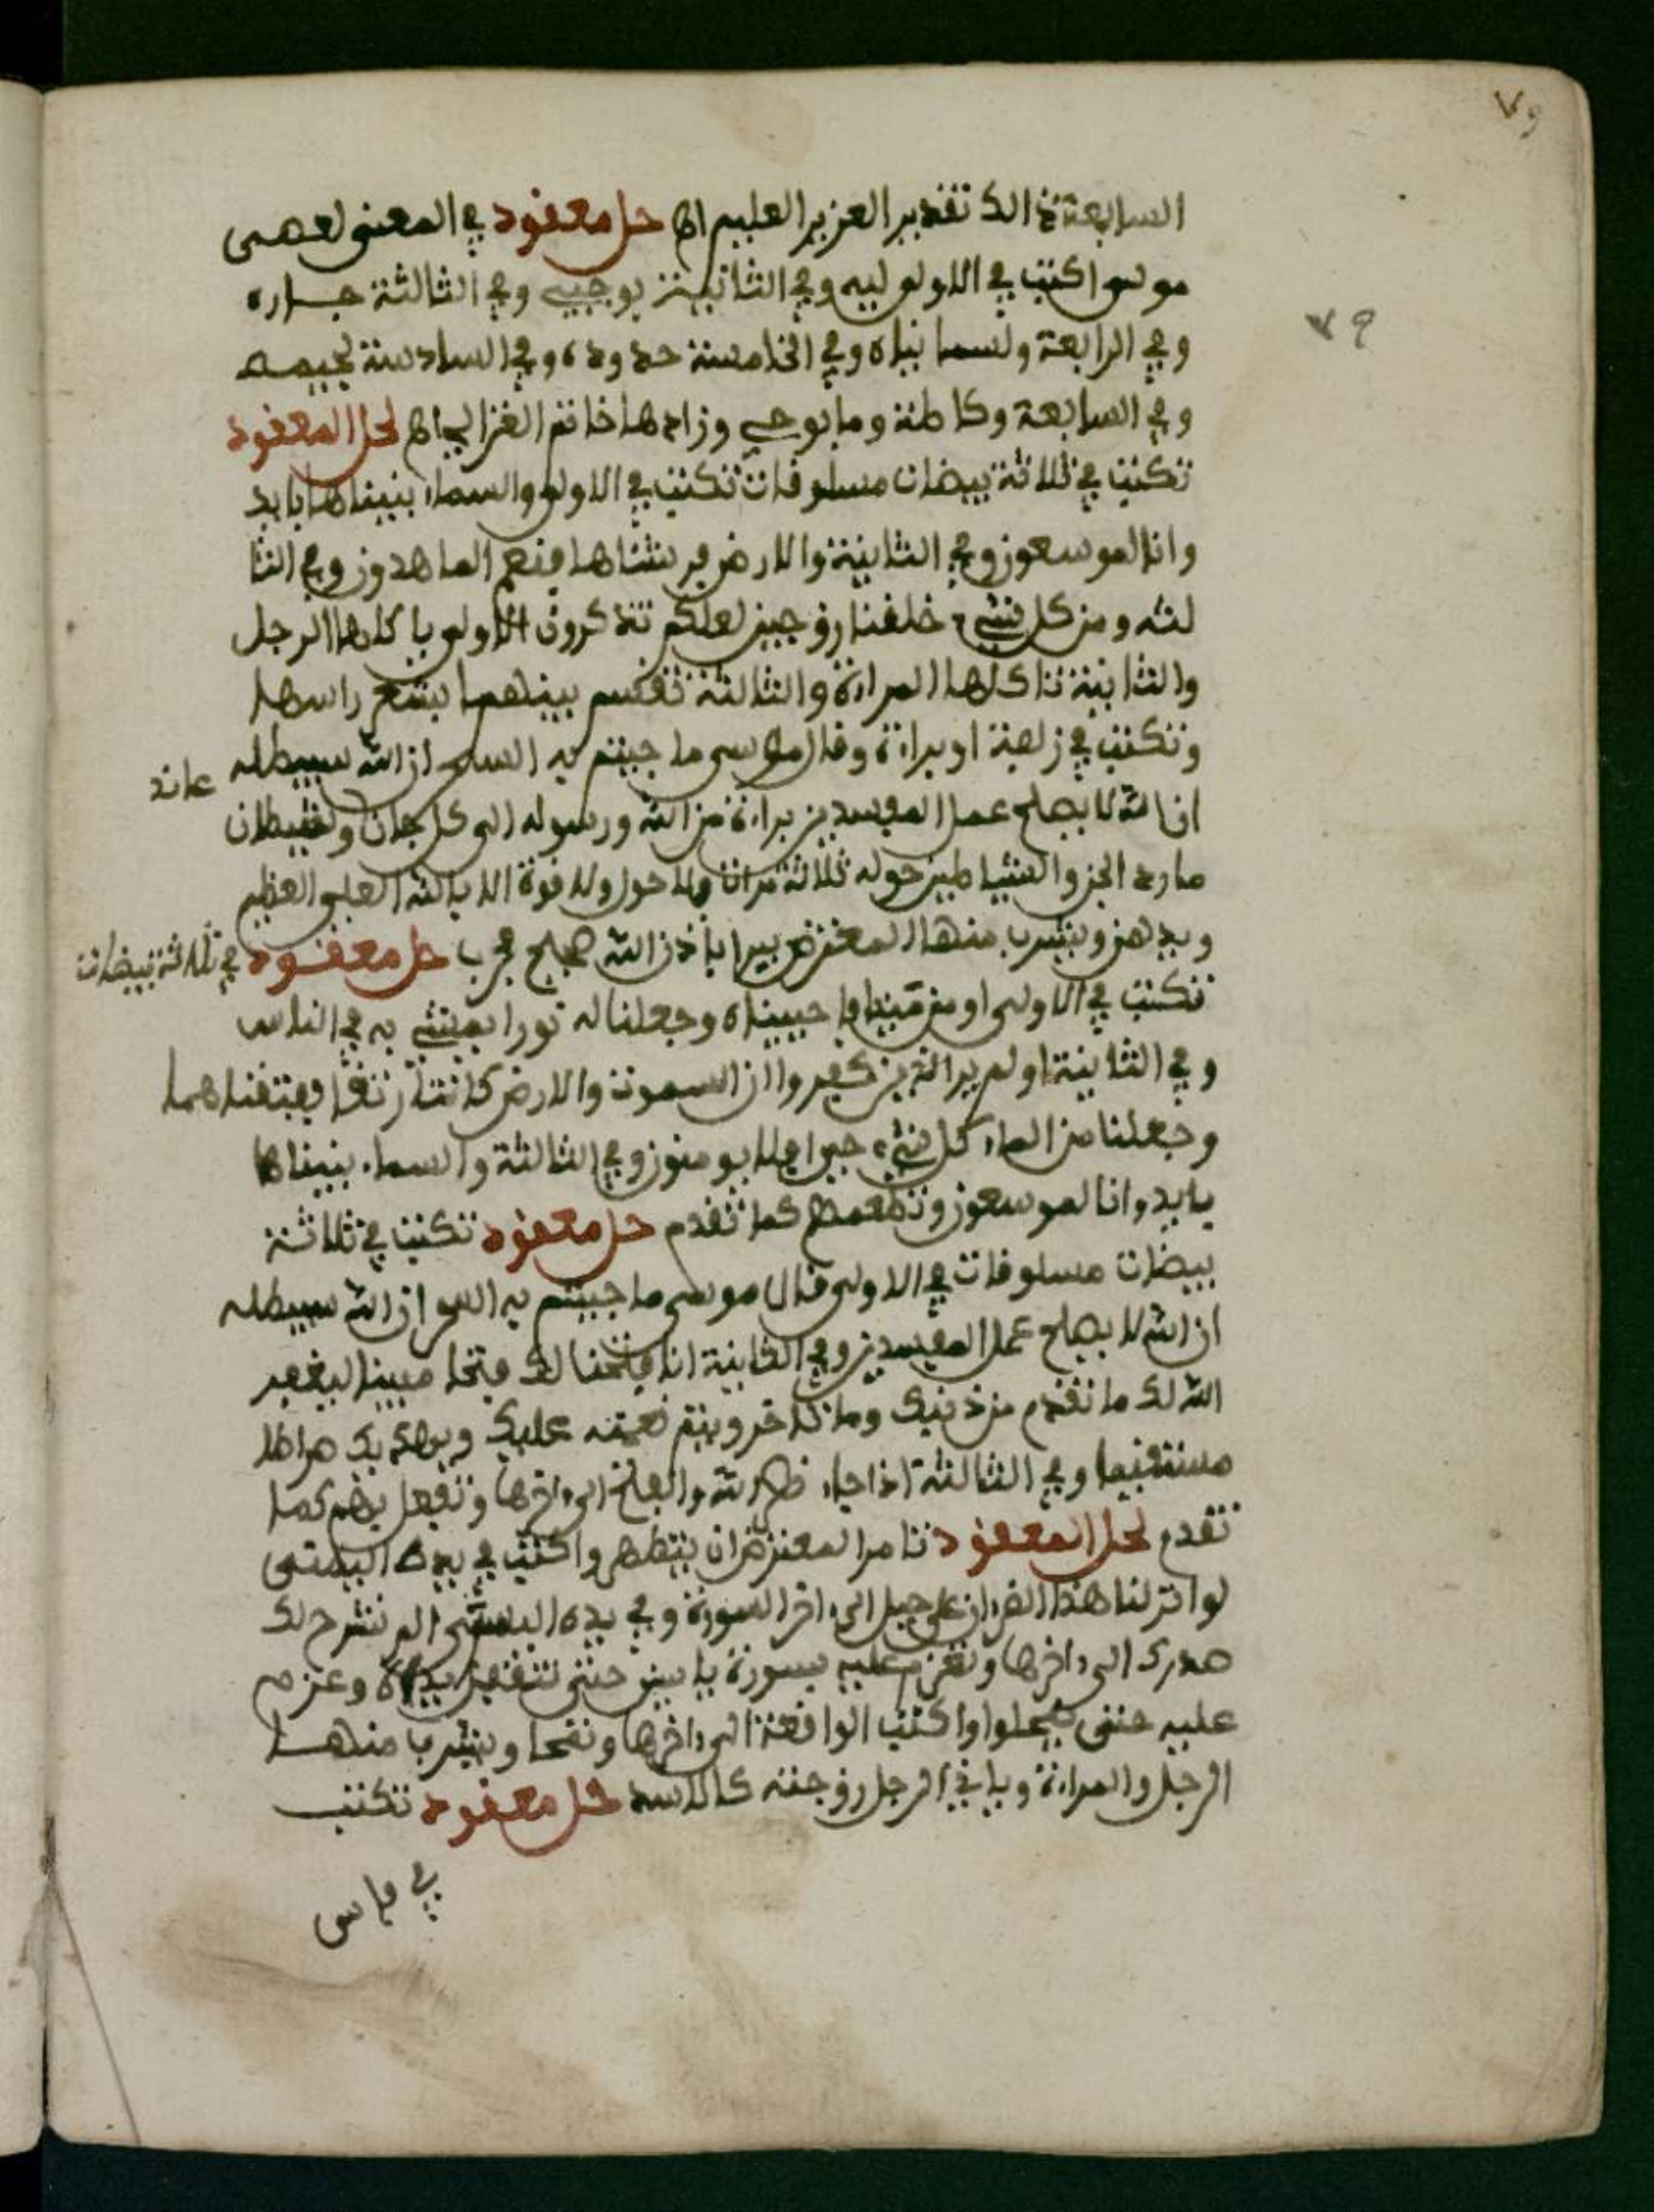 ٧٩
٧٩
السابعة ذالك تقدير العزيز العليم اه حل معقود في المعنى
اكتب في الاولى وفي الثانية وفي الثالثة
وفي الرابعة وفي الخامسة وفي السادسة
وفي السابعة وزادها خاتم الغزالي اه لحل المعقود
تكتب في ثلاثة بيضات مسلوقات تكتب في الاولى والسماء بنيناها بايد
وانا لموسعون وفي الثانية والارض فرشناها فنعم الماهدون وفي الثا
لثة ومن كل شيء خلقنا زوجين لعلكم تذكرون الاولى ياكلها الرجل
والثانية تاكلها المراة والثالثة تقسم بينهما
وتكتب في او براءة وقال موسى ما جيتم به السحر ان الله سيبطله
ان الله لا يصلح عمل المفسدين براءة من الله ورسوله الى كل جان وشيطان
مارد الجن والشياطين حوله ثلاثة مرات ولا حول ولا قوة الا بالله العلي العظيم
ويدهن ويشرب منها المعترض يبرا باذن الله صحيح مجرب حل معقود في ثلاثة بيضات
تكتب في الاولى او من ميتا فاحييناه وجعلنا له نورا يمشي به في الناس
وفي الثانية اولم ير الذين كفروا ان السموت والارض كانتا رتقا ففتقناهما
وجعلنا من الماء كل شيء حي افلا يومنون وفي الثالثة والسماء بنيناها
بايد وانا لموسعون وتطعمهم كما تقدم حل معقود تكتب في ثلاثة
بيضات مسلوقات في الاولى قال موسى ما جيتم به السحر ان الله سيبطله
ان الله لا يصلح عمل المفسدين وفي الثانية انا فتحنا لك فتحا مبينا ليغفر
الله لك ما تقدم من ذنبك وما تاخر ويتم نعمته عليك ويهديك صراطا
مستقيما وفي الثالثة اذا جاء نصر الله والفتح الى اخرها وتفعل بهم كما
تقدم لحل المعقود تامر المعترض ان يتطهر واكتب في يده اليمنى
لو انزلنا هذا القران على جبل الى اخر السورة وفي يده اليسرى الم نشرح لك
صدرك الى اخرها وتعزم عليه بسورة ياسين حتى يداه وعزم
عليه حتى واكتب الواقعة الى اخرها ويشرب منها
الرجل والمراة وياتي الرجل زوجته كالاسد حل معقود تكتب
في فاس